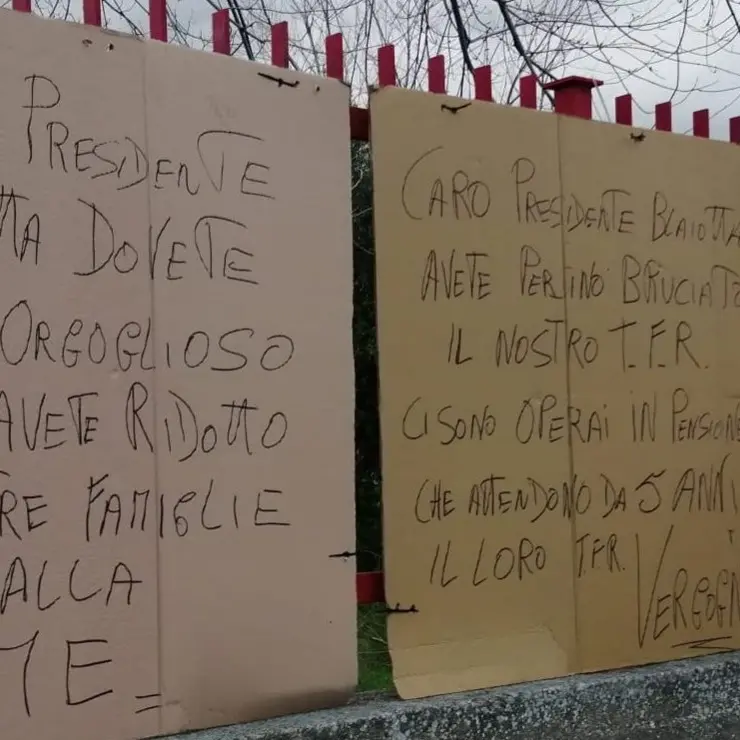 PRESIDENTE
TTA DOVETE
ORGOGLIOSO
AVETE RIDOTTO
TRE FAMIGLIE
ALLA
ME =
CARO PRESIDENTE BLAIOTTA
AVETE PERFINO BRUCIATO
IL NOSTRO T.F.R.
CI SONO OPERAI IN PENSIONE
CHE ATTENDONO DA 5 ANNI
IL LORO T.F.R.
VERGOGN